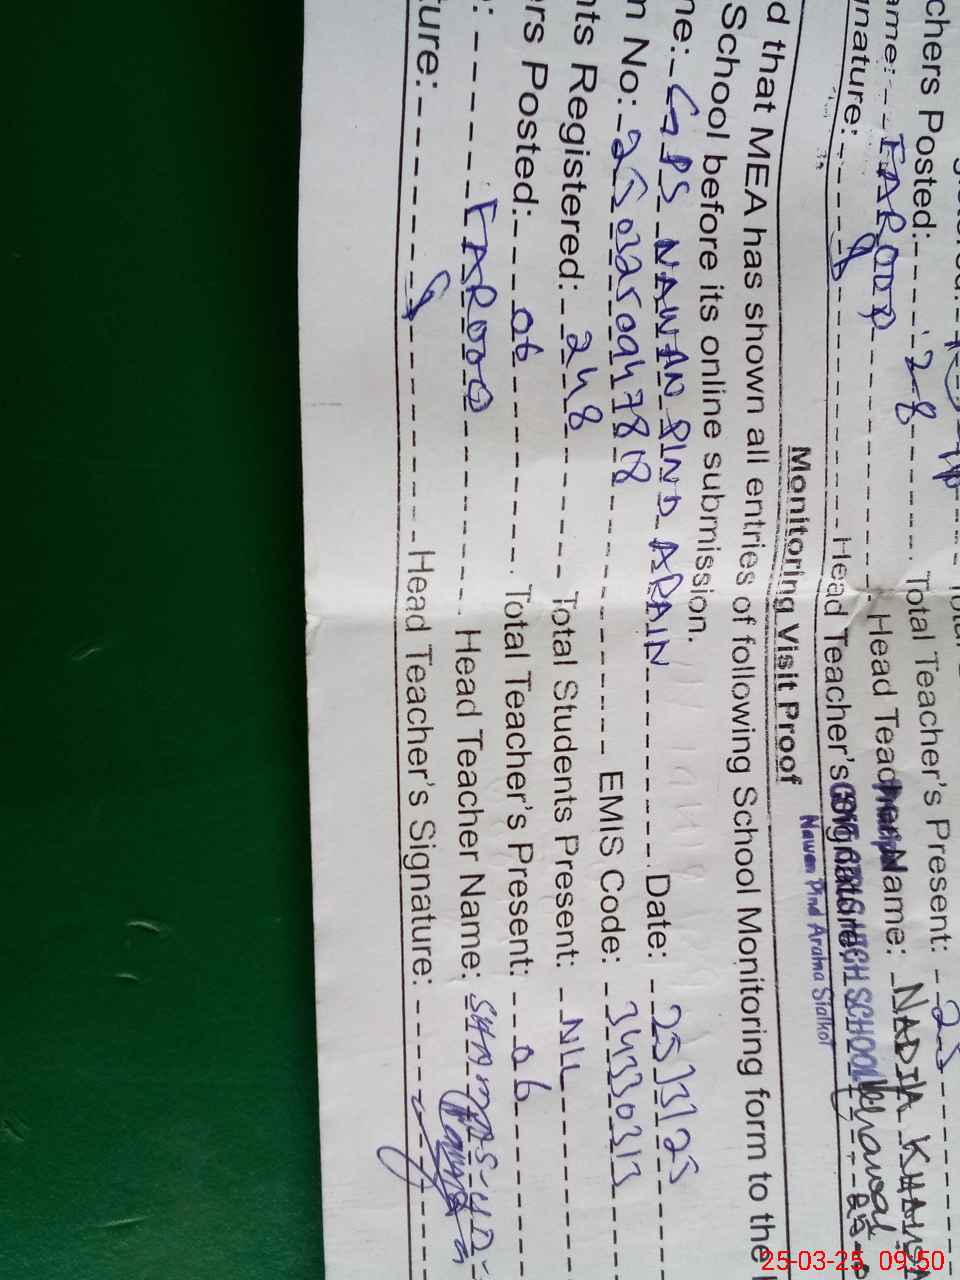 chers Posted: 28 Total Teacher's Present: 25
ame: FAROOQ Head Teacher Name: NADIA KHAWAR
gnature: Head Teacher's Signature
HIGH SCHOOL
Nawan Pind Araina Sialkot
Monitoring Visit Proof
d that MEA has shown all entries of following School Monitoring form to the
School before its online submission.
me: GPS NAWAN PIND ARAIN Date: 25/3/25
n No: EMIS Code: 34330313
nts Registered: 248 Total Students Present: NIL
ers Posted: 06 Total Teacher's Present: 06
: FAROOQ Head Teacher Name:
ture: Head Teacher's Signature:
25-03-25 09:50